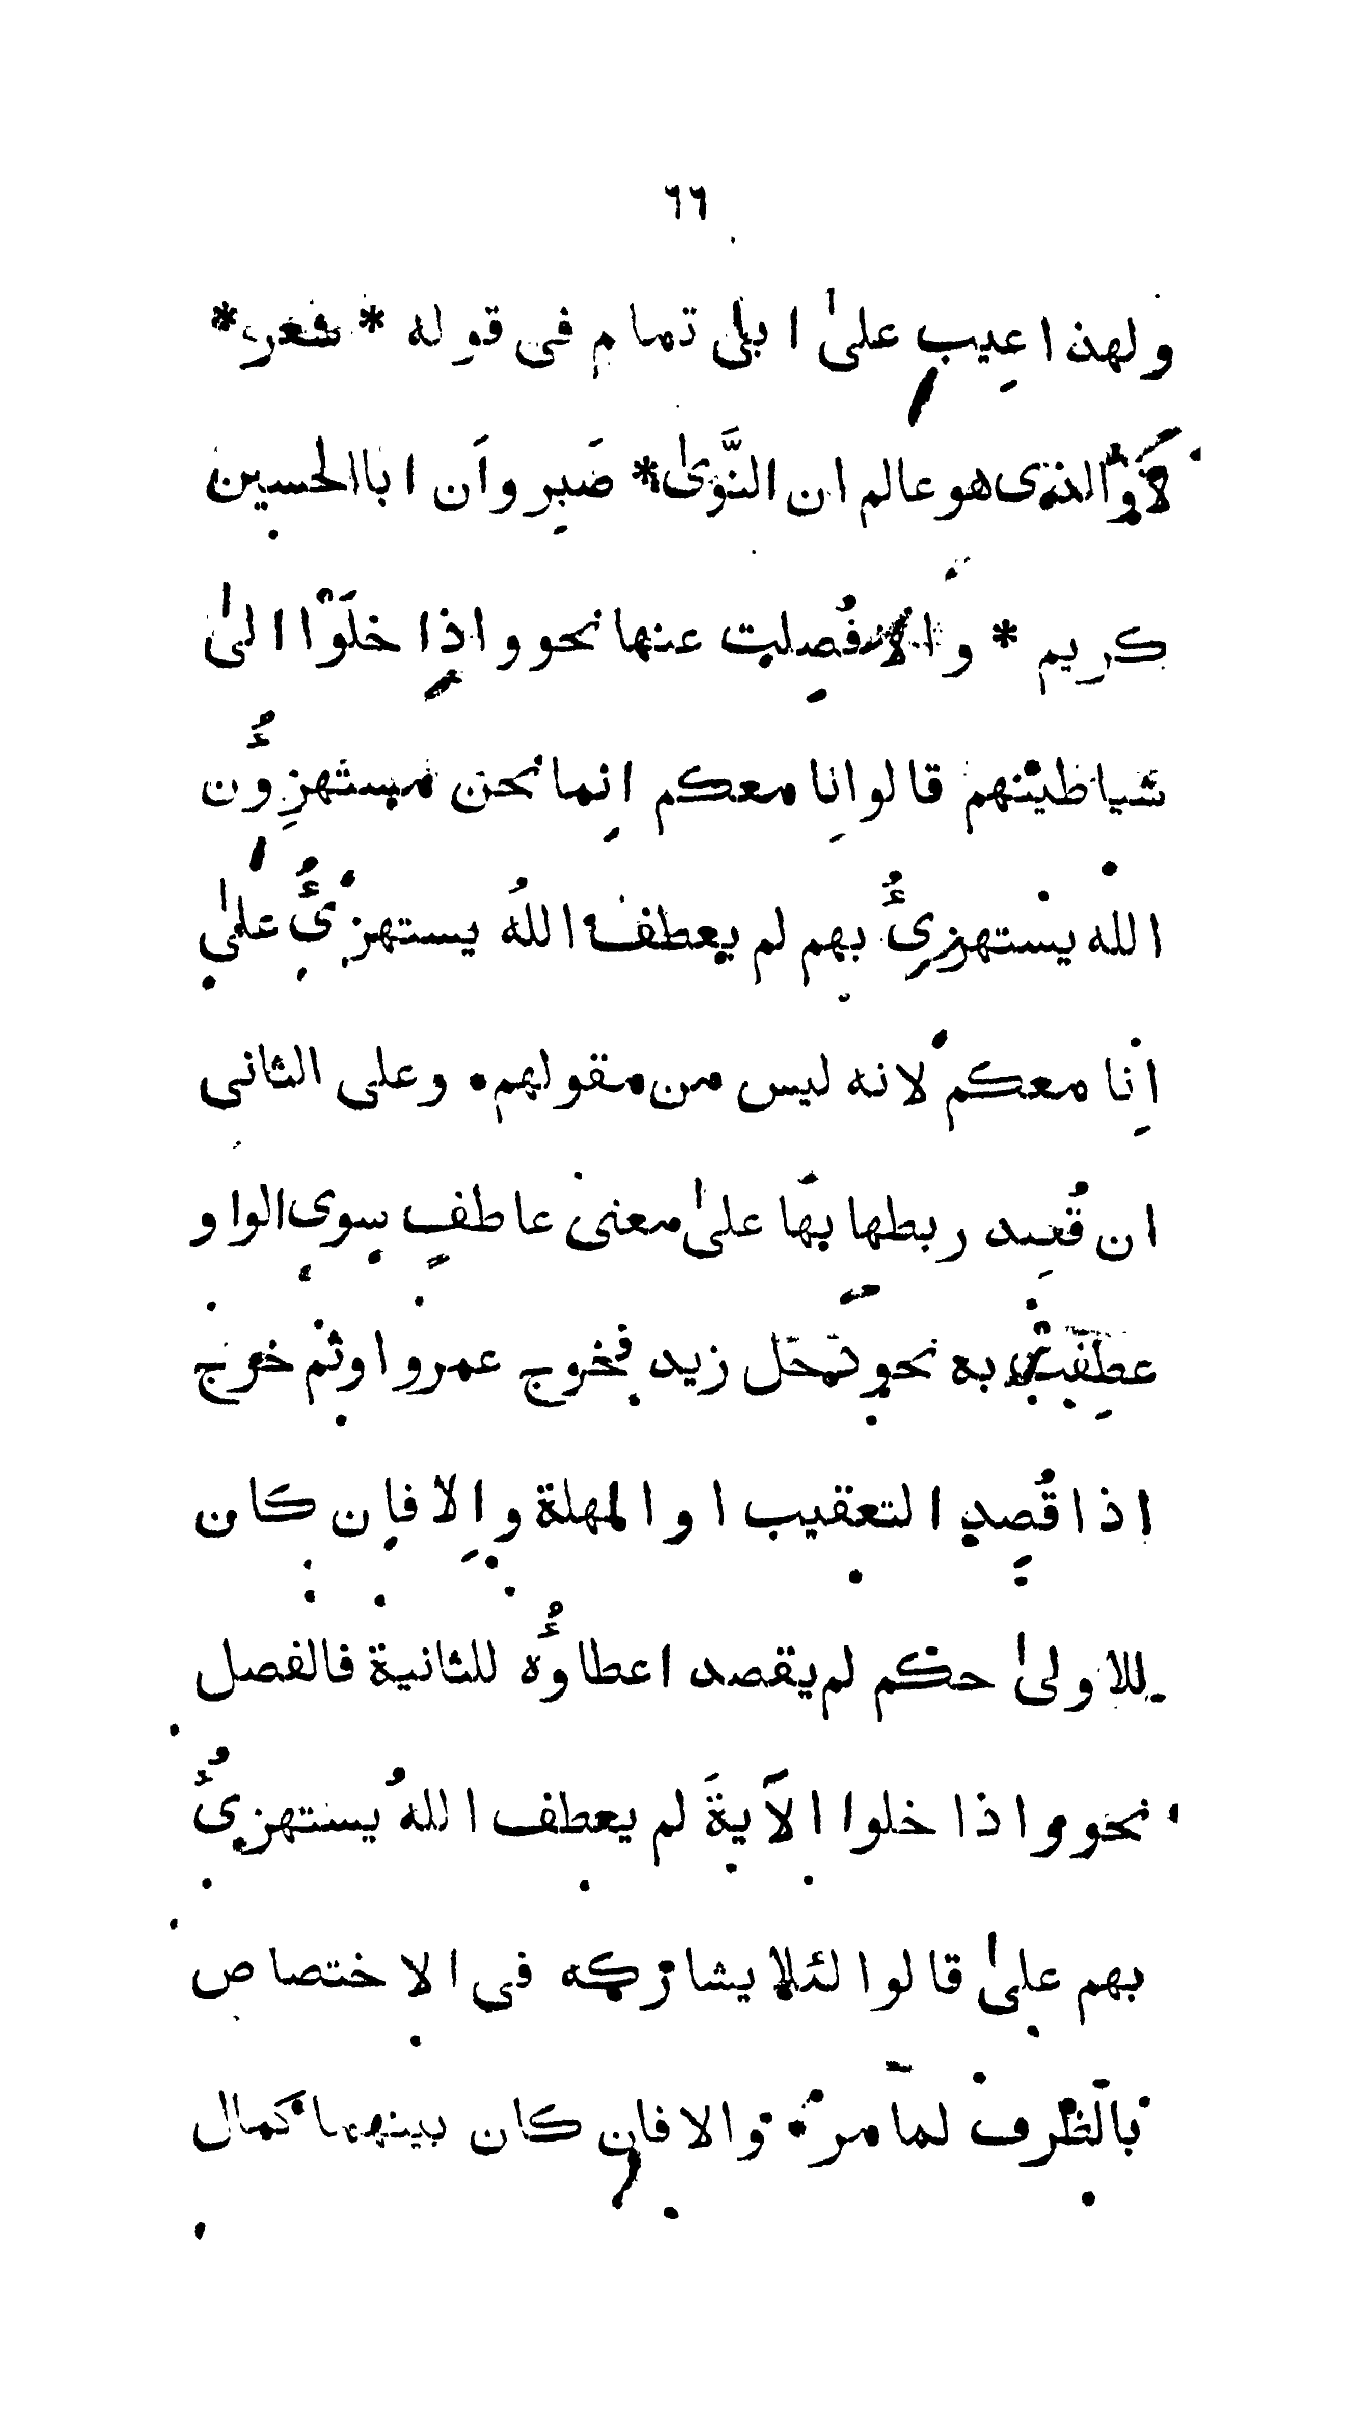 ٦٦
ولهذا عِيب علىٰ ابى تمام فى قوله * شعر *
لاَ وَالذى هو عالم ان النَّوىٰ * صَبِر واَن ابا الحسين
كريم * والا فُصِلت عنها نحو واذِا خلَوْا الىٰ
شياطينهم قالوا اِنا معكم اِنما نحن مستهزِؤُن
الله يستهزِئُ بهم لم يعطف اللهُ يستهزِئُ علىٰ
اِنا معكم لانه ليس من مقولهم • وعلى الثانى
ان قُصِد ربطها بهَا علىٰ معنى عاطفٍ سِوى الواو
عطِفت به نحو دَخَل زيد فخرج عمرو اوثم خرج
اذا قُصِد التعقيب او المهلة واِلا فاِن كان
للاولىٰ حكم لم يقصد اعطاؤُه للثانية فالفصل
نحو واذا خلوا الآيةَ لم يعطف اللهُ يستهزِئُ
بهم علىٰ قالوا لئلا يشاركه فى الاختصاص
بالظرف لما مر • والا فاِن كان بينهما كمال